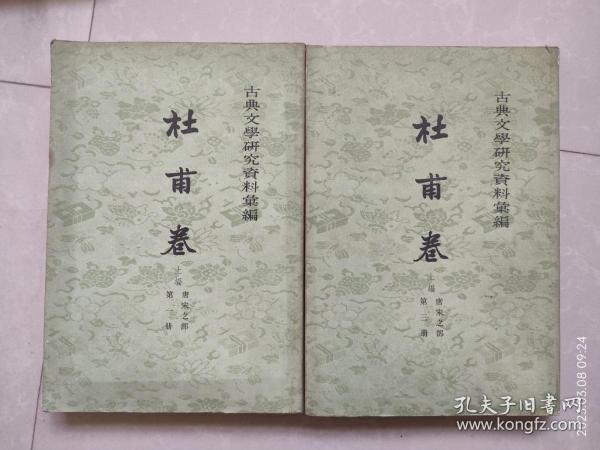 古典文學研究資料彙編
杜甫卷
上編
唐宋之部
第 册
古典文學研究資料彙編
杜甫卷
上編
唐宋之部
第 册
03.08 09:24
孔夫子旧书网
www.kongfz.com